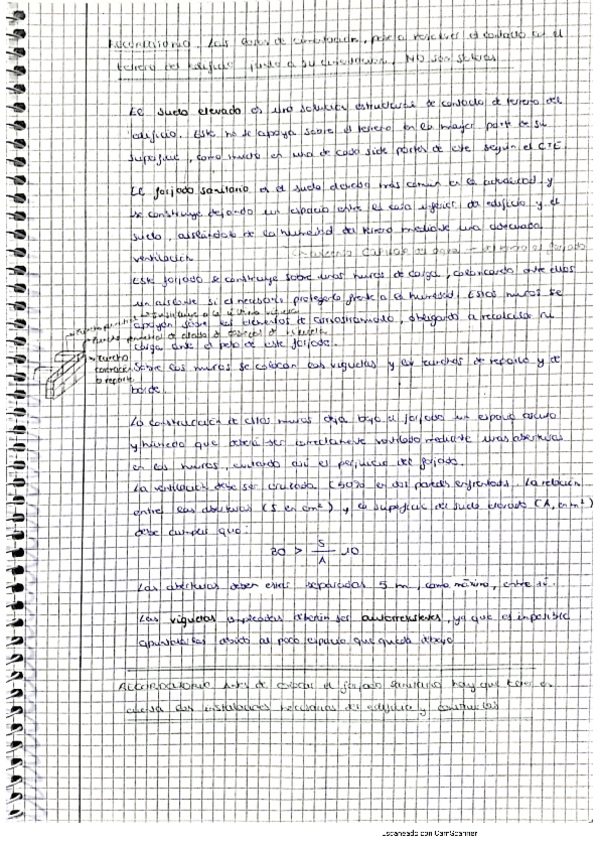 RECORDATORIO. Las de cimentación, para resolver el contacto con el
terreno del edificio junto a su , NO son soleras
El suelo elevado es una solución estructural de contacto de terreno del
edificio. Este no se apoya sobre el terreno en la mayor parte de su
superficie, como mucho en una de cada siete partes de este según el CTE.
El forjado sanitario es el suelo elevado más común en la actualidad, y
se construye dejando un espacio entre el inferior del edificio y el
suelo, aislándolo de la humedad del terreno mediante una adecuada
ventilación
Este forjado se construye sobre unos muros de carga, colocando ante ellos
un aislante si es necesario protegerlo frente a la humedad. Estos muros se
apoyan sobre los elementos de , obligando a recalcular su
carga ante el peso de este forjado.
zuncho
Sobre los muros se colocan las viguetas y los zunchos de reparto y de
o reparto
borde.
La construcción de estos muros deja bajo el forjado un espacio oscuro
y húmedo que deberá ser correctamente ventilado mediante unas aberturas
en los muros, evitando así el perjuicio del forjado.
La ventilación debe ser cruzada (50% en dos paredes enfrentadas. La relación
entre las aberturas (S en cm²) y la superficie del suelo elevado (A, en m²)
debe cumplir que:
30 > S/A > 10
Las aberturas deben estar separadas 5 m, como máximo, entre sí.
Las viguetas empleadas deberán ser autorresistentes, ya que es imposible
apuntalarlas debido al poco espacio que queda debajo
RECORDATORIO Antes de colocar el forjado sanitario hay que tener en
cuenta las instalaciones necesarias del edificio y construirlas
Escaneado con CamScanner